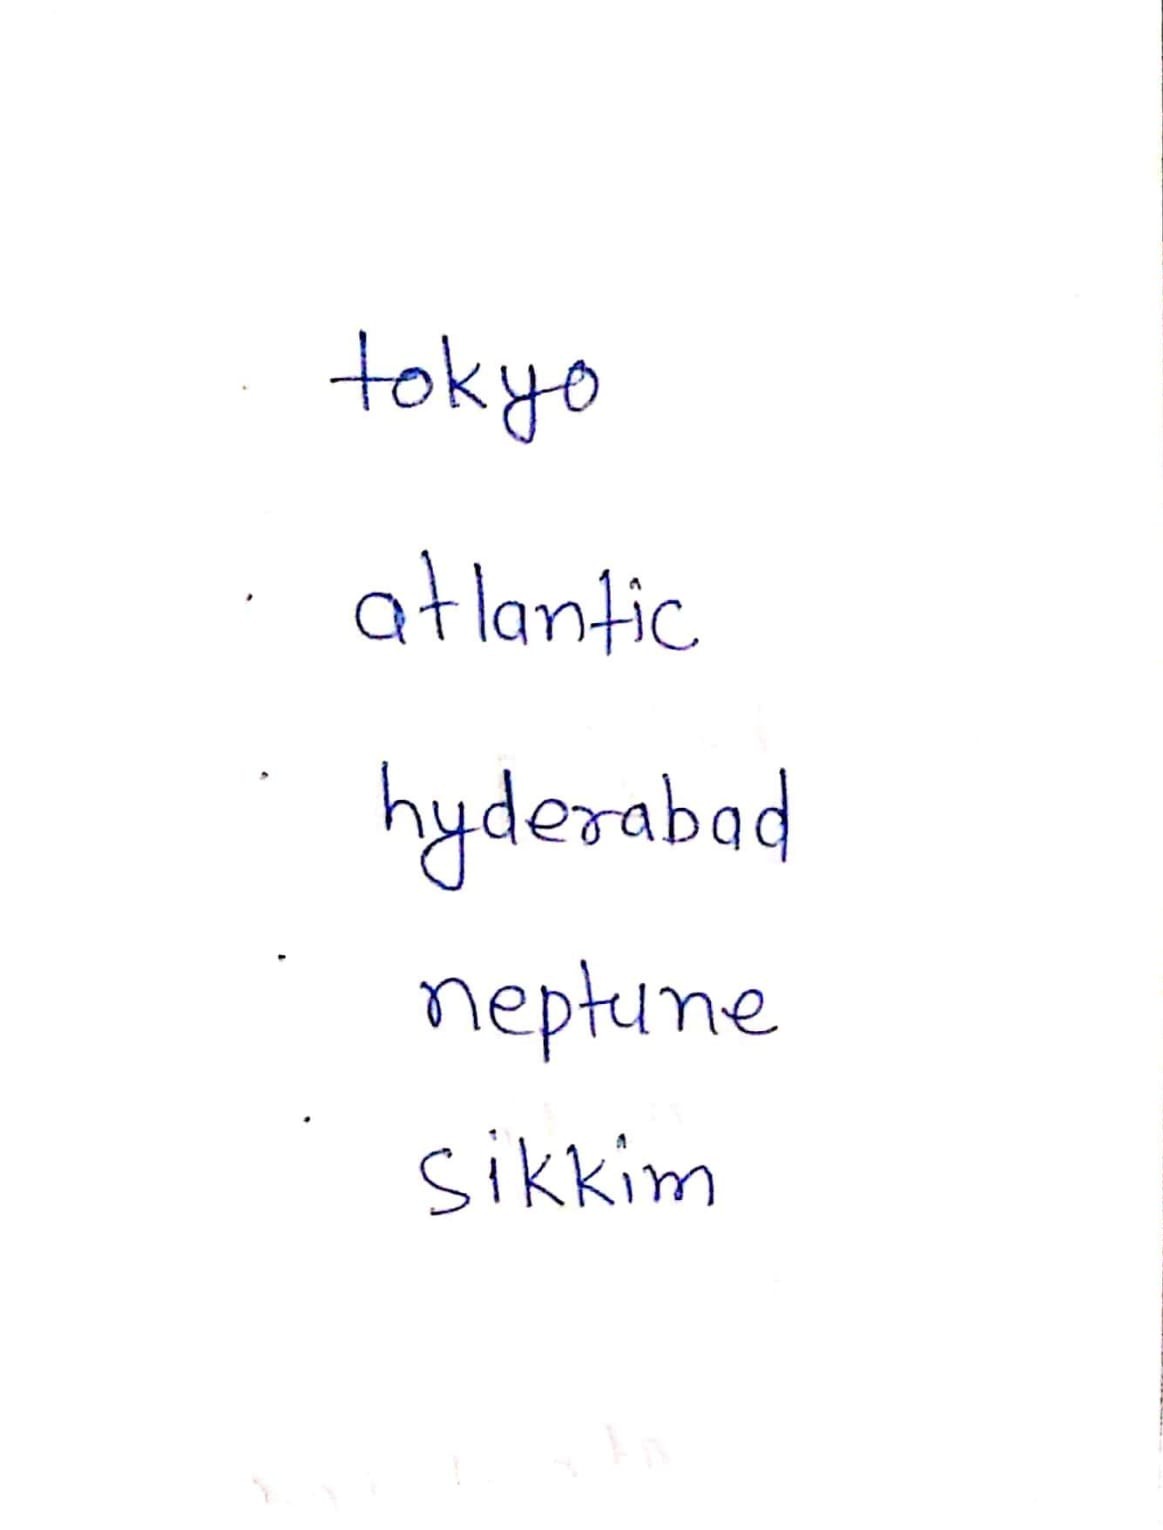 tokyo
atlantic
hyderabad
neptune
sikkim